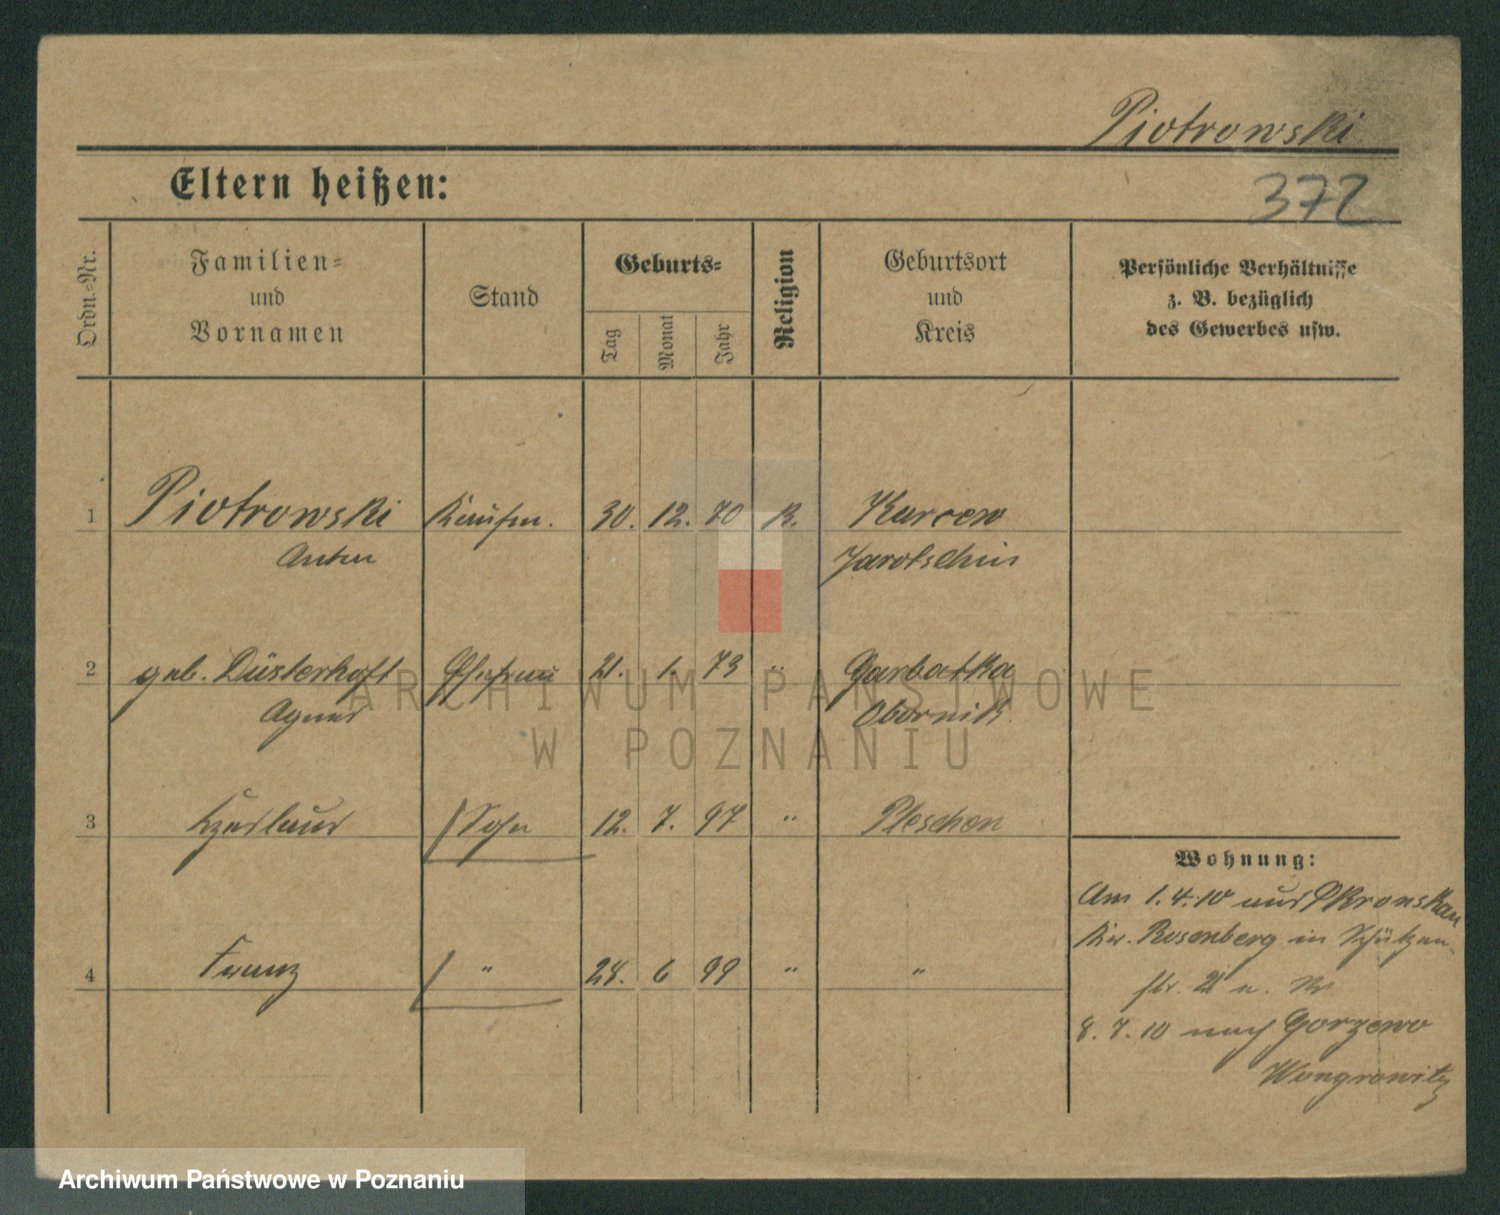 Piotrowski
Eltern heißen:
372
Ordn.-Nr.
Familien-
und
Vornamen
Stand
Geburts-
Tag
Monat
Jahr
Religion
Geburtsort
und
Kreis
Persönliche Verhältnisse
z. B. bezüglich
des Gewerbes usw.
1 Piotrowski 30. 12. 70 K. Karcew
Anton Jarotschin
2 geb. Düsterhoft Ehefrau 21. 1. 73 " Garbatka
Agnes Obornik.
3 Sohn 12. 7. 97 " Pleschen
Wohnung:
Am 1.4.10 aus
Rosenberg in Schützen-
4 Franz " 28. 6 99 " "
str. 21
8. 7. 10 nach Gorzewo
Wongrowitz
ARCHIWUM PAŃSTWOWE
W POZNANIU
Archiwum Państwowe w Poznaniu